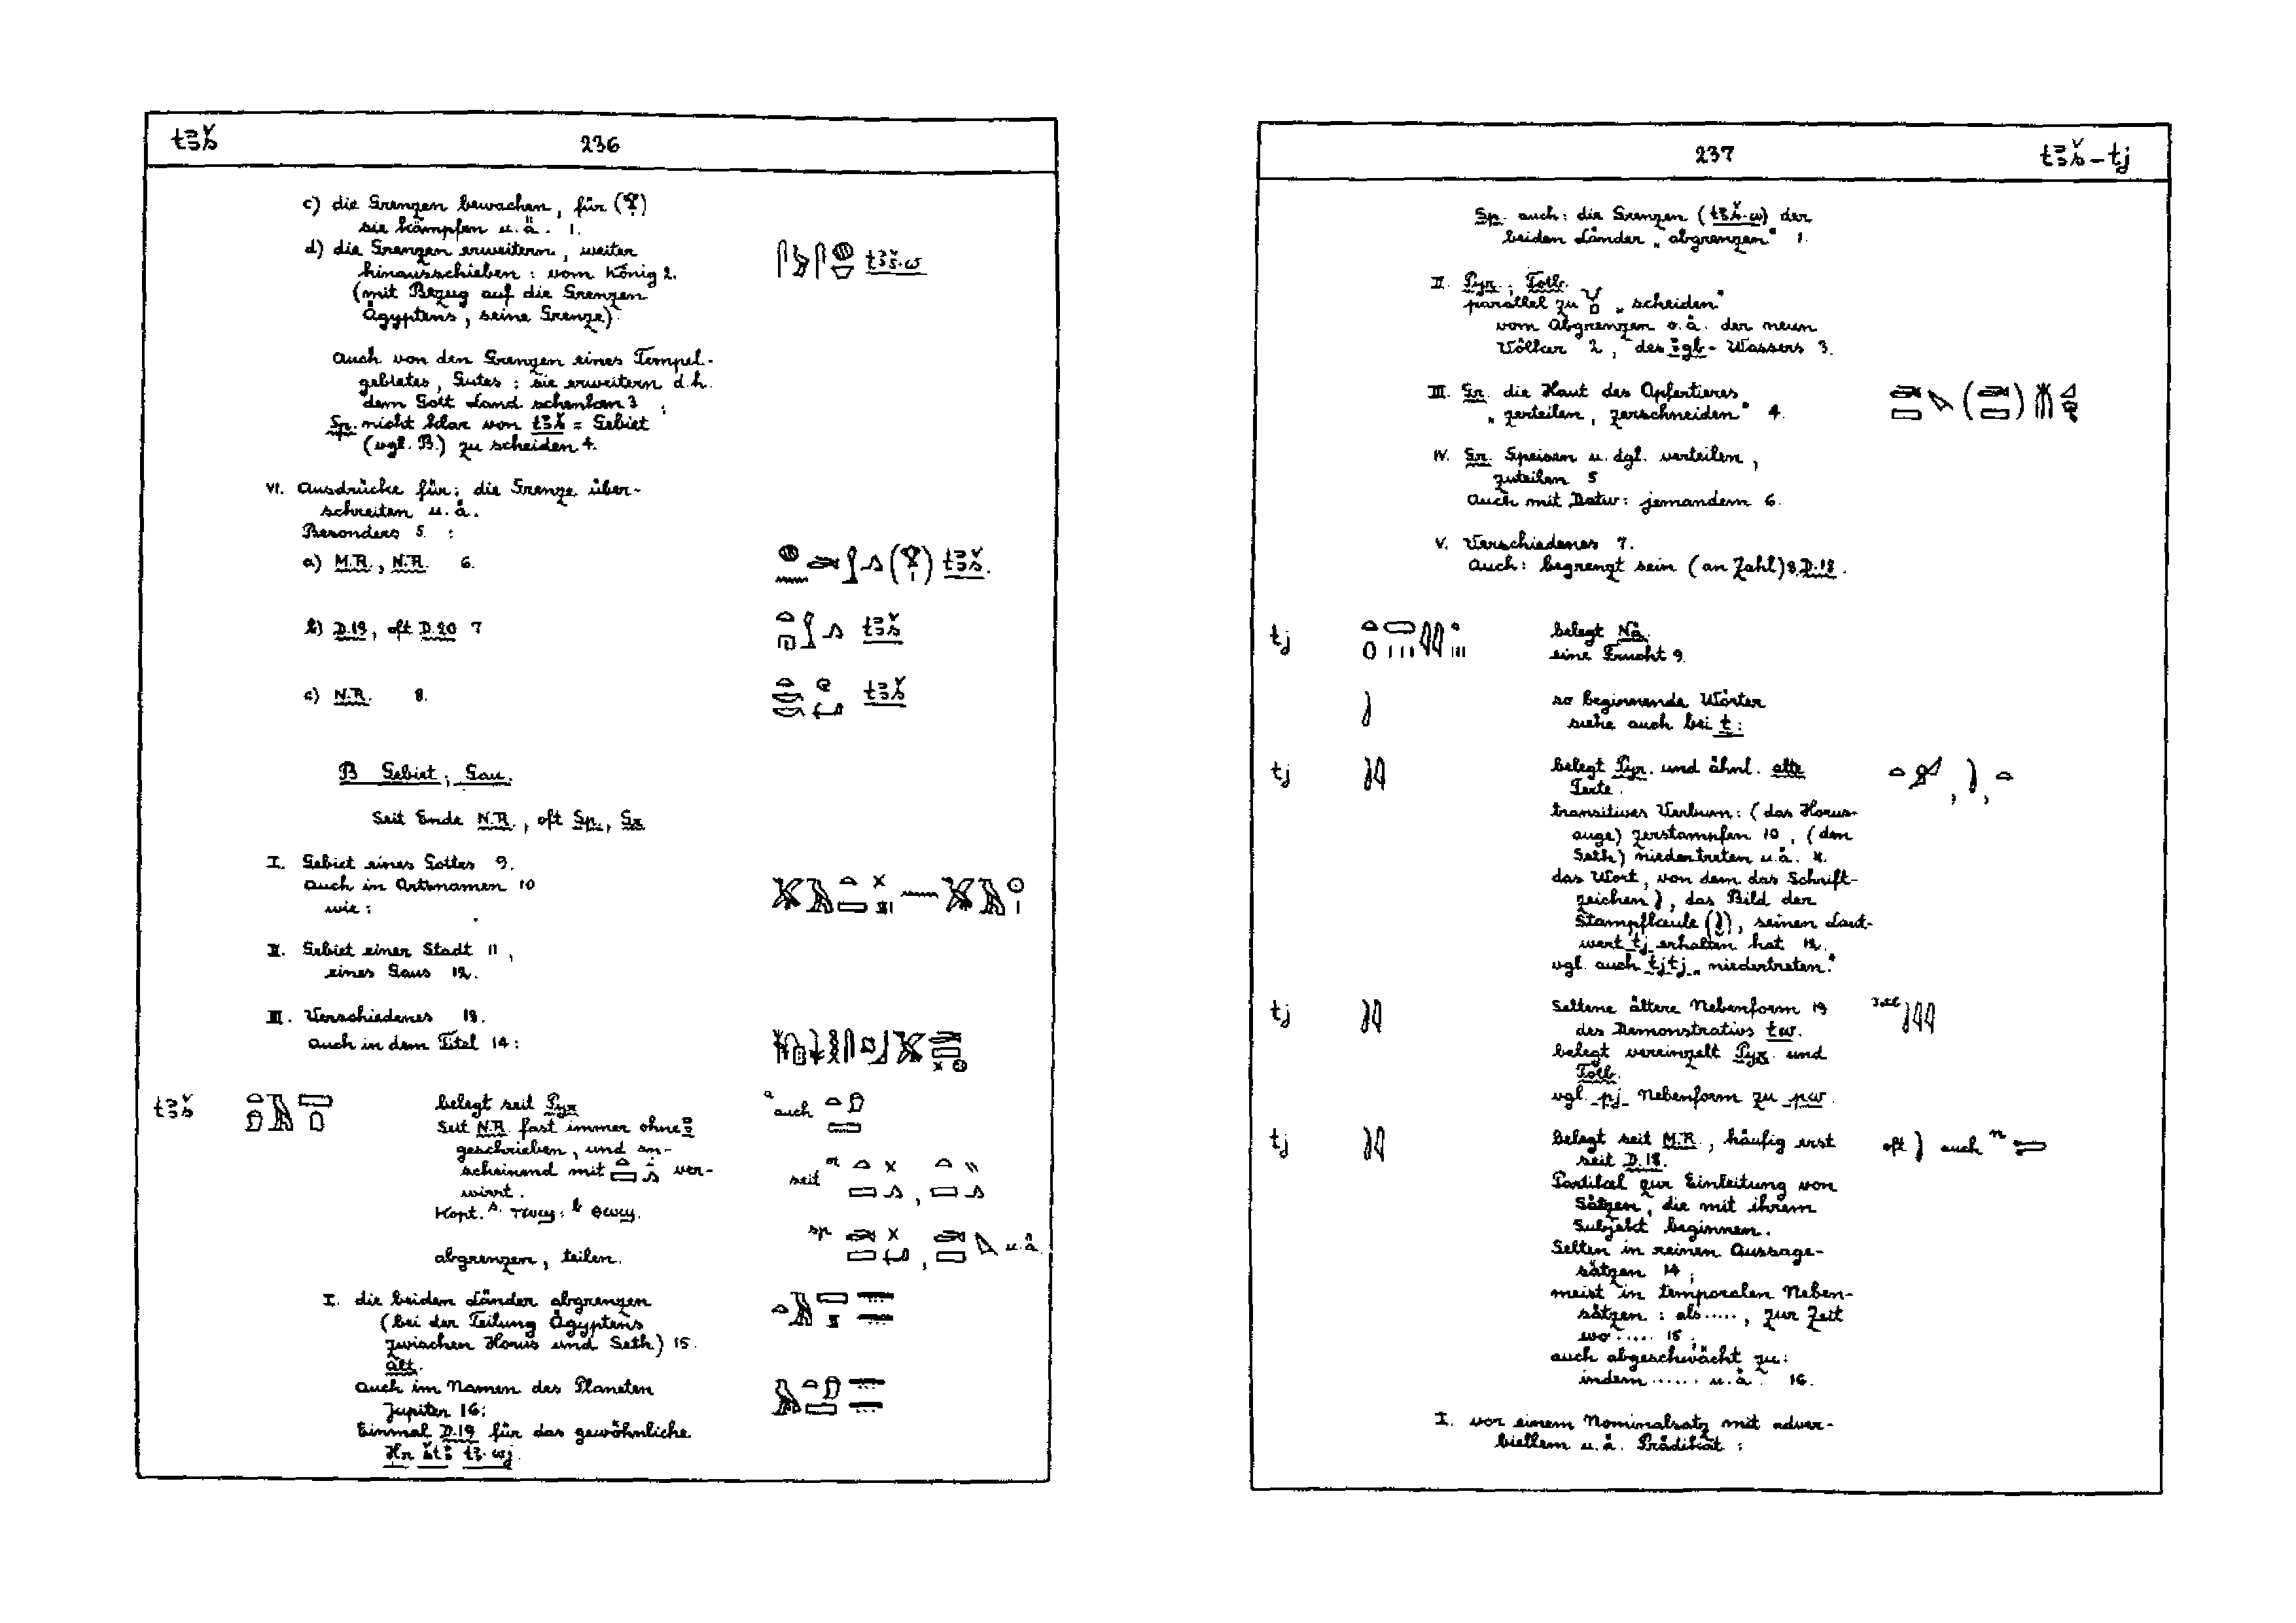 tꜣš
236
c) die Grenzen bewachen, für (𓁷)
sie kämpfen u.ä. 1.
d) die Grenzen erweitern, weiter
hinausschieben: vom König 2.
tꜣš.w
(mit Bezug auf die Grenzen
Ägyptens, seine Grenze).
Auch von den Grenzen eines Tempel-
gebietes, Gutes: sie erweitern d.h.
dem Gott Land schenken 3;
Sp. nicht klar von tꜣš = Gebiet
(vgl. B.) zu scheiden 4.
VI. Ausdrücke für: die Grenze über-
schreiten u.ä.
Besonders 5 :
a) M.R., N.R. 6. tꜣš.
b) D.19, oft D.20 7 tꜣš
c) N.R. 8. tꜣš
B Gebiet; Gau.
Seit Ende N.R., oft Sp., Gr.
I. Gebiet eines Gottes 9.
Auch in Ortsnamen 10
wie:
II. Gebiet einer Stadt 11,
eines Gaus 12.
III. Verschiedenes 13.
Auch in dem Titel 14:
tꜣš
belegt seit Pyr.
a auch
Seit N.R. fast immer ohne ꜣ
geschrieben, und an-
scheinend mit ver-
wirrt.
seit
Kopt. S. ⲧⲱϣ: B ⲑⲱϣ.
Sp. u.ä.
abgrenzen, teilen.
I. die beiden Länder abgrenzen
(bei der Teilung Ägyptens
zwischen Horus und Seth) 15.
alt.
Auch im Namen des Planeten
Jupiter 16:
Einmal D.19 für das gewöhnliche
Ḥr štꜣ tꜣ.wj.
237
tꜣš – tj
Sp. auch: die Grenzen (tꜣš.w) der
beiden Länder „abgrenzen" 1.
II. Pyr.; Totb.
parallel zu „scheiden"
vom Abgrenzen o.ä. der neun
Völker 2, des ꜣgb-Wassers 3.
III. Gr. die Haut des Opfertieres
„zerteilen, zerschneiden" 4.
IV. Gr. Speisen u. dgl. verteilen,
zuteilen 5
Auch mit Dativ: jemandem 6.
V. Verschiedenes 7.
Auch: begrenzt sein (an Zahl) 8 D.18.
tj
belegt Nä.
eine Frucht 9.
so beginnende Wörter
siehe auch bei t:
tj
belegt Pyr. und ähnl. alte
Texte.
transitives Verbum: (das Horus-
auge) zerstampfen 10, (den
Seth) niedertreten u.ä. 11.
das Wort, von dem das Schrift-
zeichen 𓍘, das Bild der
Stampfkeule (𓍘), seinen Laut-
wert tj erhalten hat 12.
vgl. auch tjtj „niedertreten."
tj
Seltene ältere Nebenform 13
Totb.
des Demonstrativs tw.
belegt vereinzelt Pyr. und
Totb.
vgl. pj Nebenform zu pw.
tj
belegt seit M.R., häufig erst
oft 𓍘 auch n
seit D.18.
Partikel zur Einleitung von
Sätzen, die mit ihrem
Subjekt beginnen.
Selten in reinen Aussage-
sätzen 14;
meist in temporalen Neben-
sätzen: als ....., zur Zeit
wo ..... 15;
auch abgeschwächt zu:
indem ...... u.ä. 16.
I. vor einem Nominalsatz mit adver-
biellem u.ä. Prädikat: